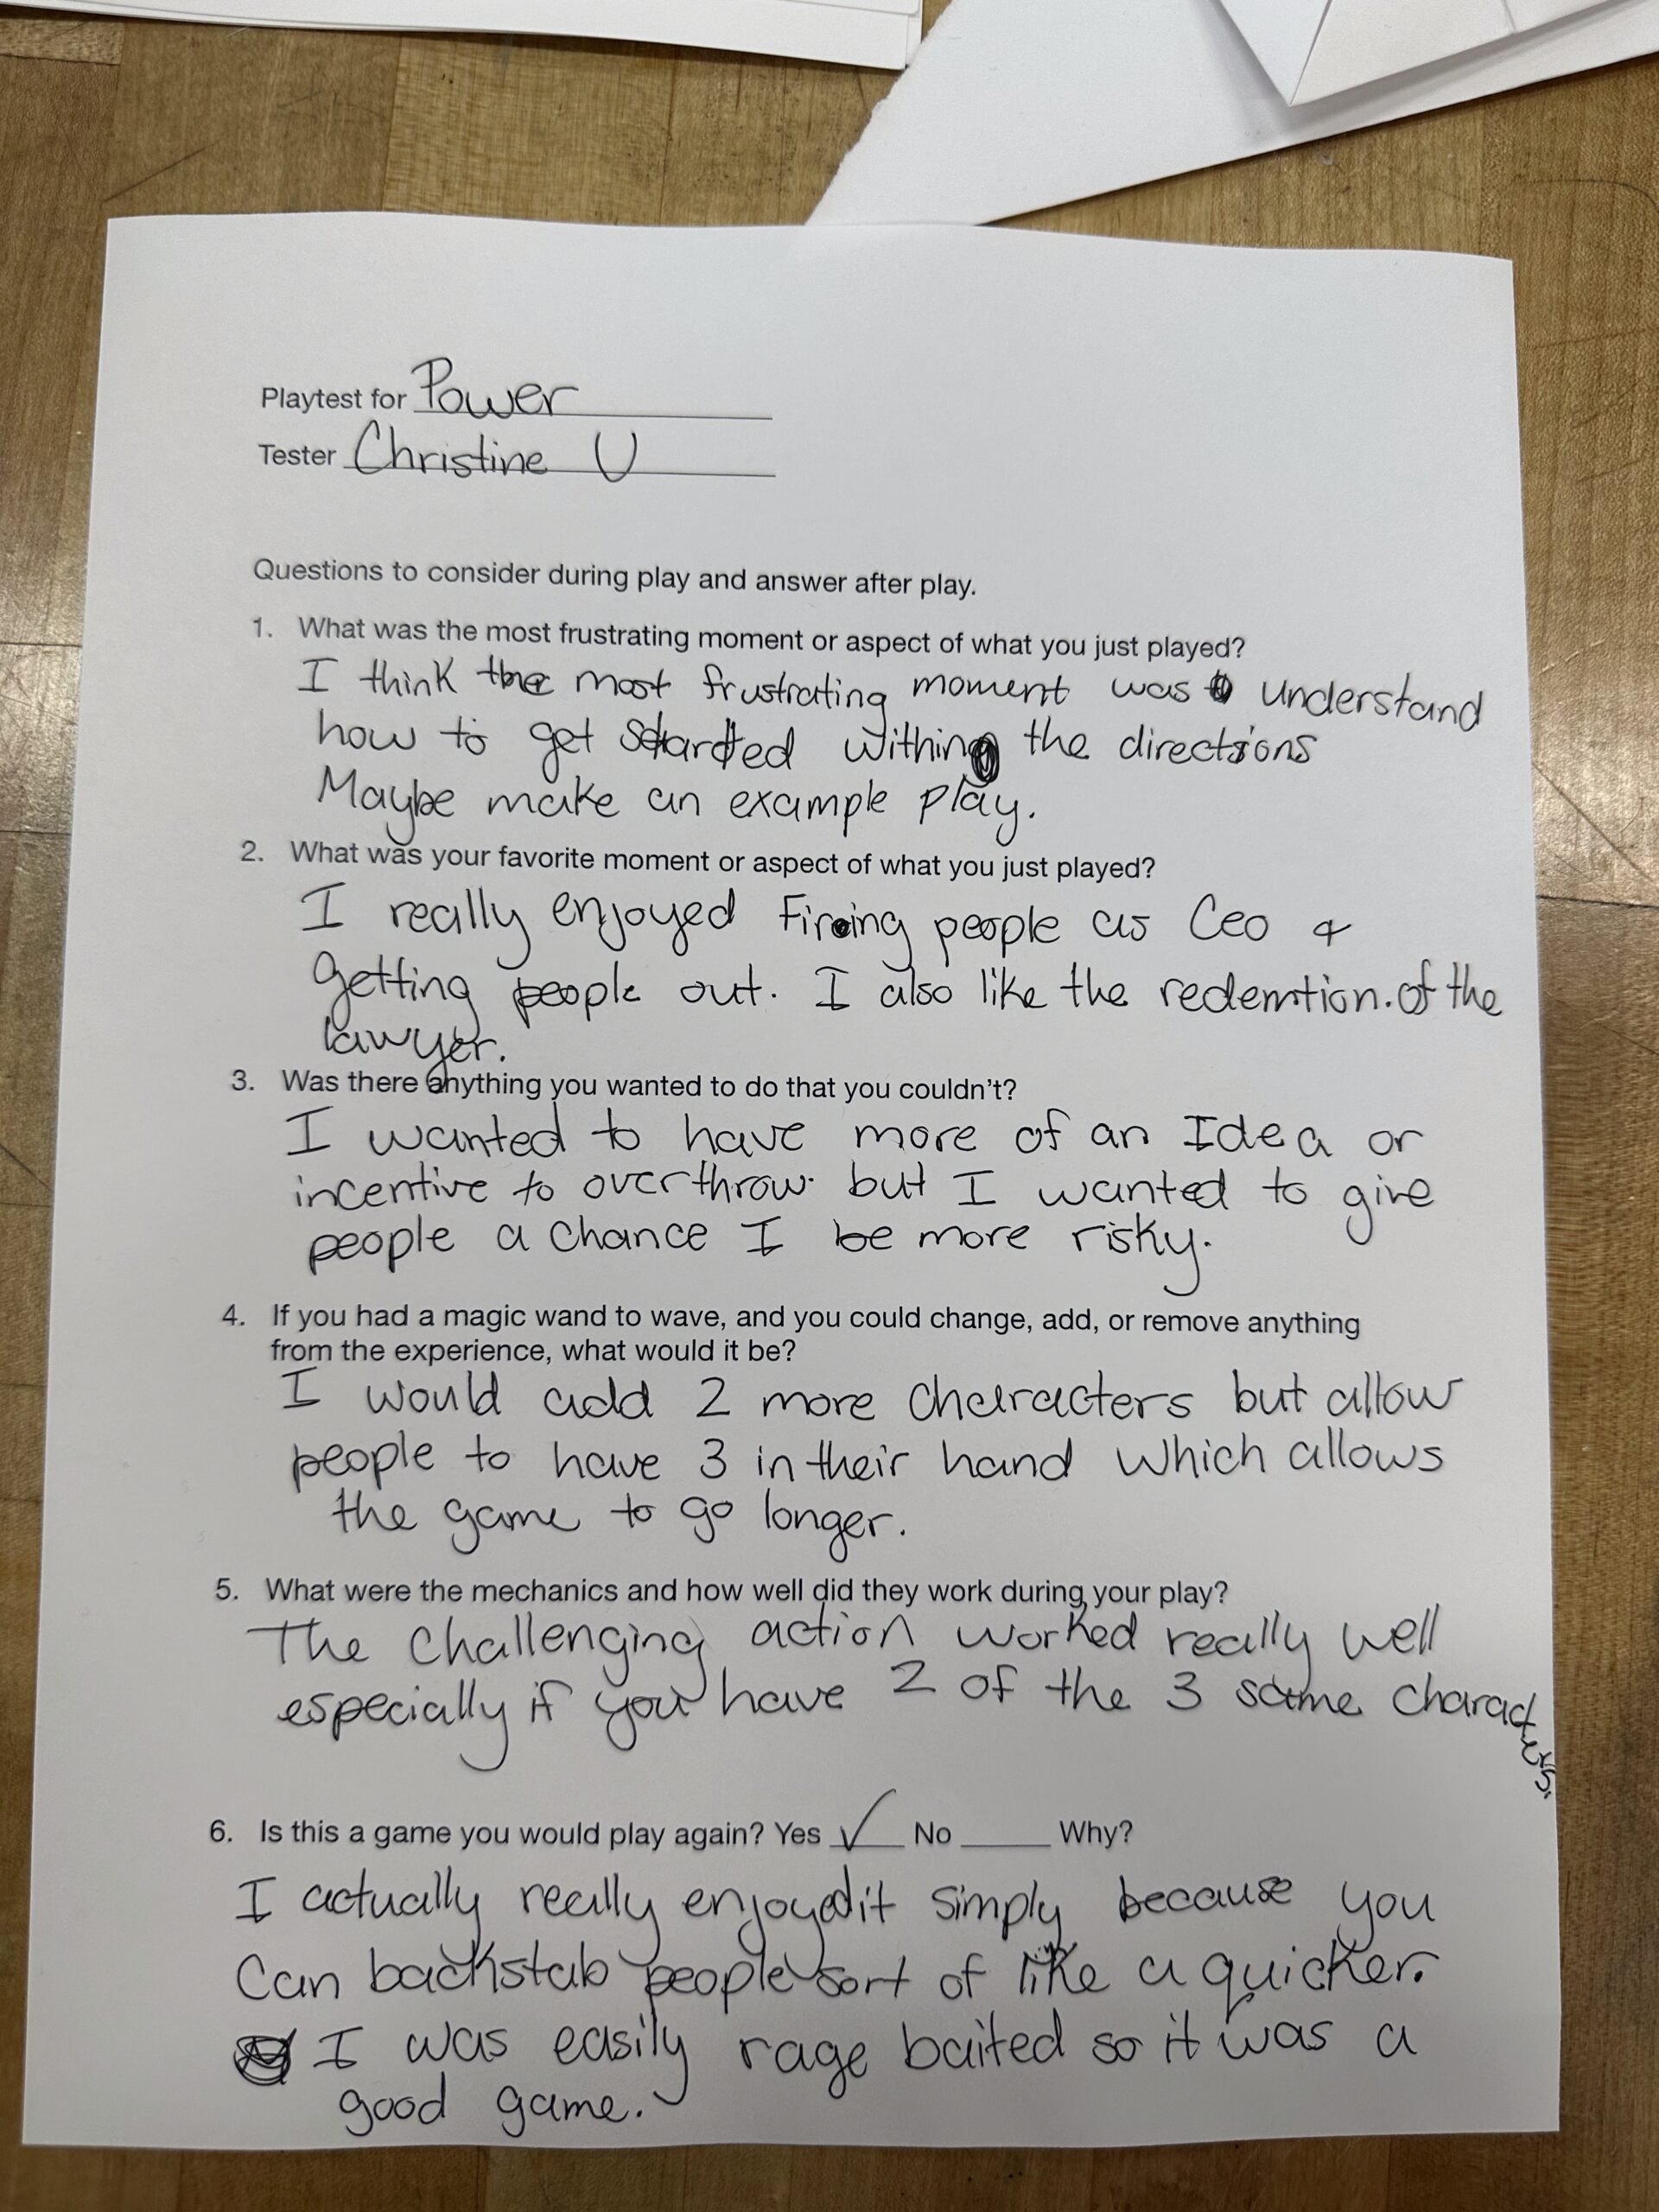 Playtest for Power
Tester Christine U
Questions to consider during play and answer after play.
1. What was the most frustrating moment or aspect of what you just played?
I think the most frustrating moment was understand
how to get started within the directions
Maybe make an example play.
2. What was your favorite moment or aspect of what you just played?
I really enjoyed Firing people as Ceo &
getting people out. I also like the redemtion. of the
lawyer.
3. Was there anything you wanted to do that you couldn't?
I wanted to have more of an Idea or
incentive to overthrow. but I wanted to give
people a chance I be more risky.
4. If you had a magic wand to wave, and you could change, add, or remove anything
from the experience, what would it be?
I would add 2 more characters but allow
people to have 3 in their hand which allows
the game to go longer.
5. What were the mechanics and how well did they work during your play?
The challenging action worked really well
especially if you have 2 of the 3 same characters.
6. Is this a game you would play again? Yes ✓ No ____ Why?
I actually really enjoyed it simply because you
Can backstab people sort of like a quicker.
I was easily rage baited so it was a
good game.